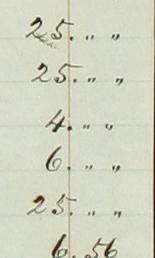 25. " "
25. " "
4. " "
6. " "
25. " "
6. 56